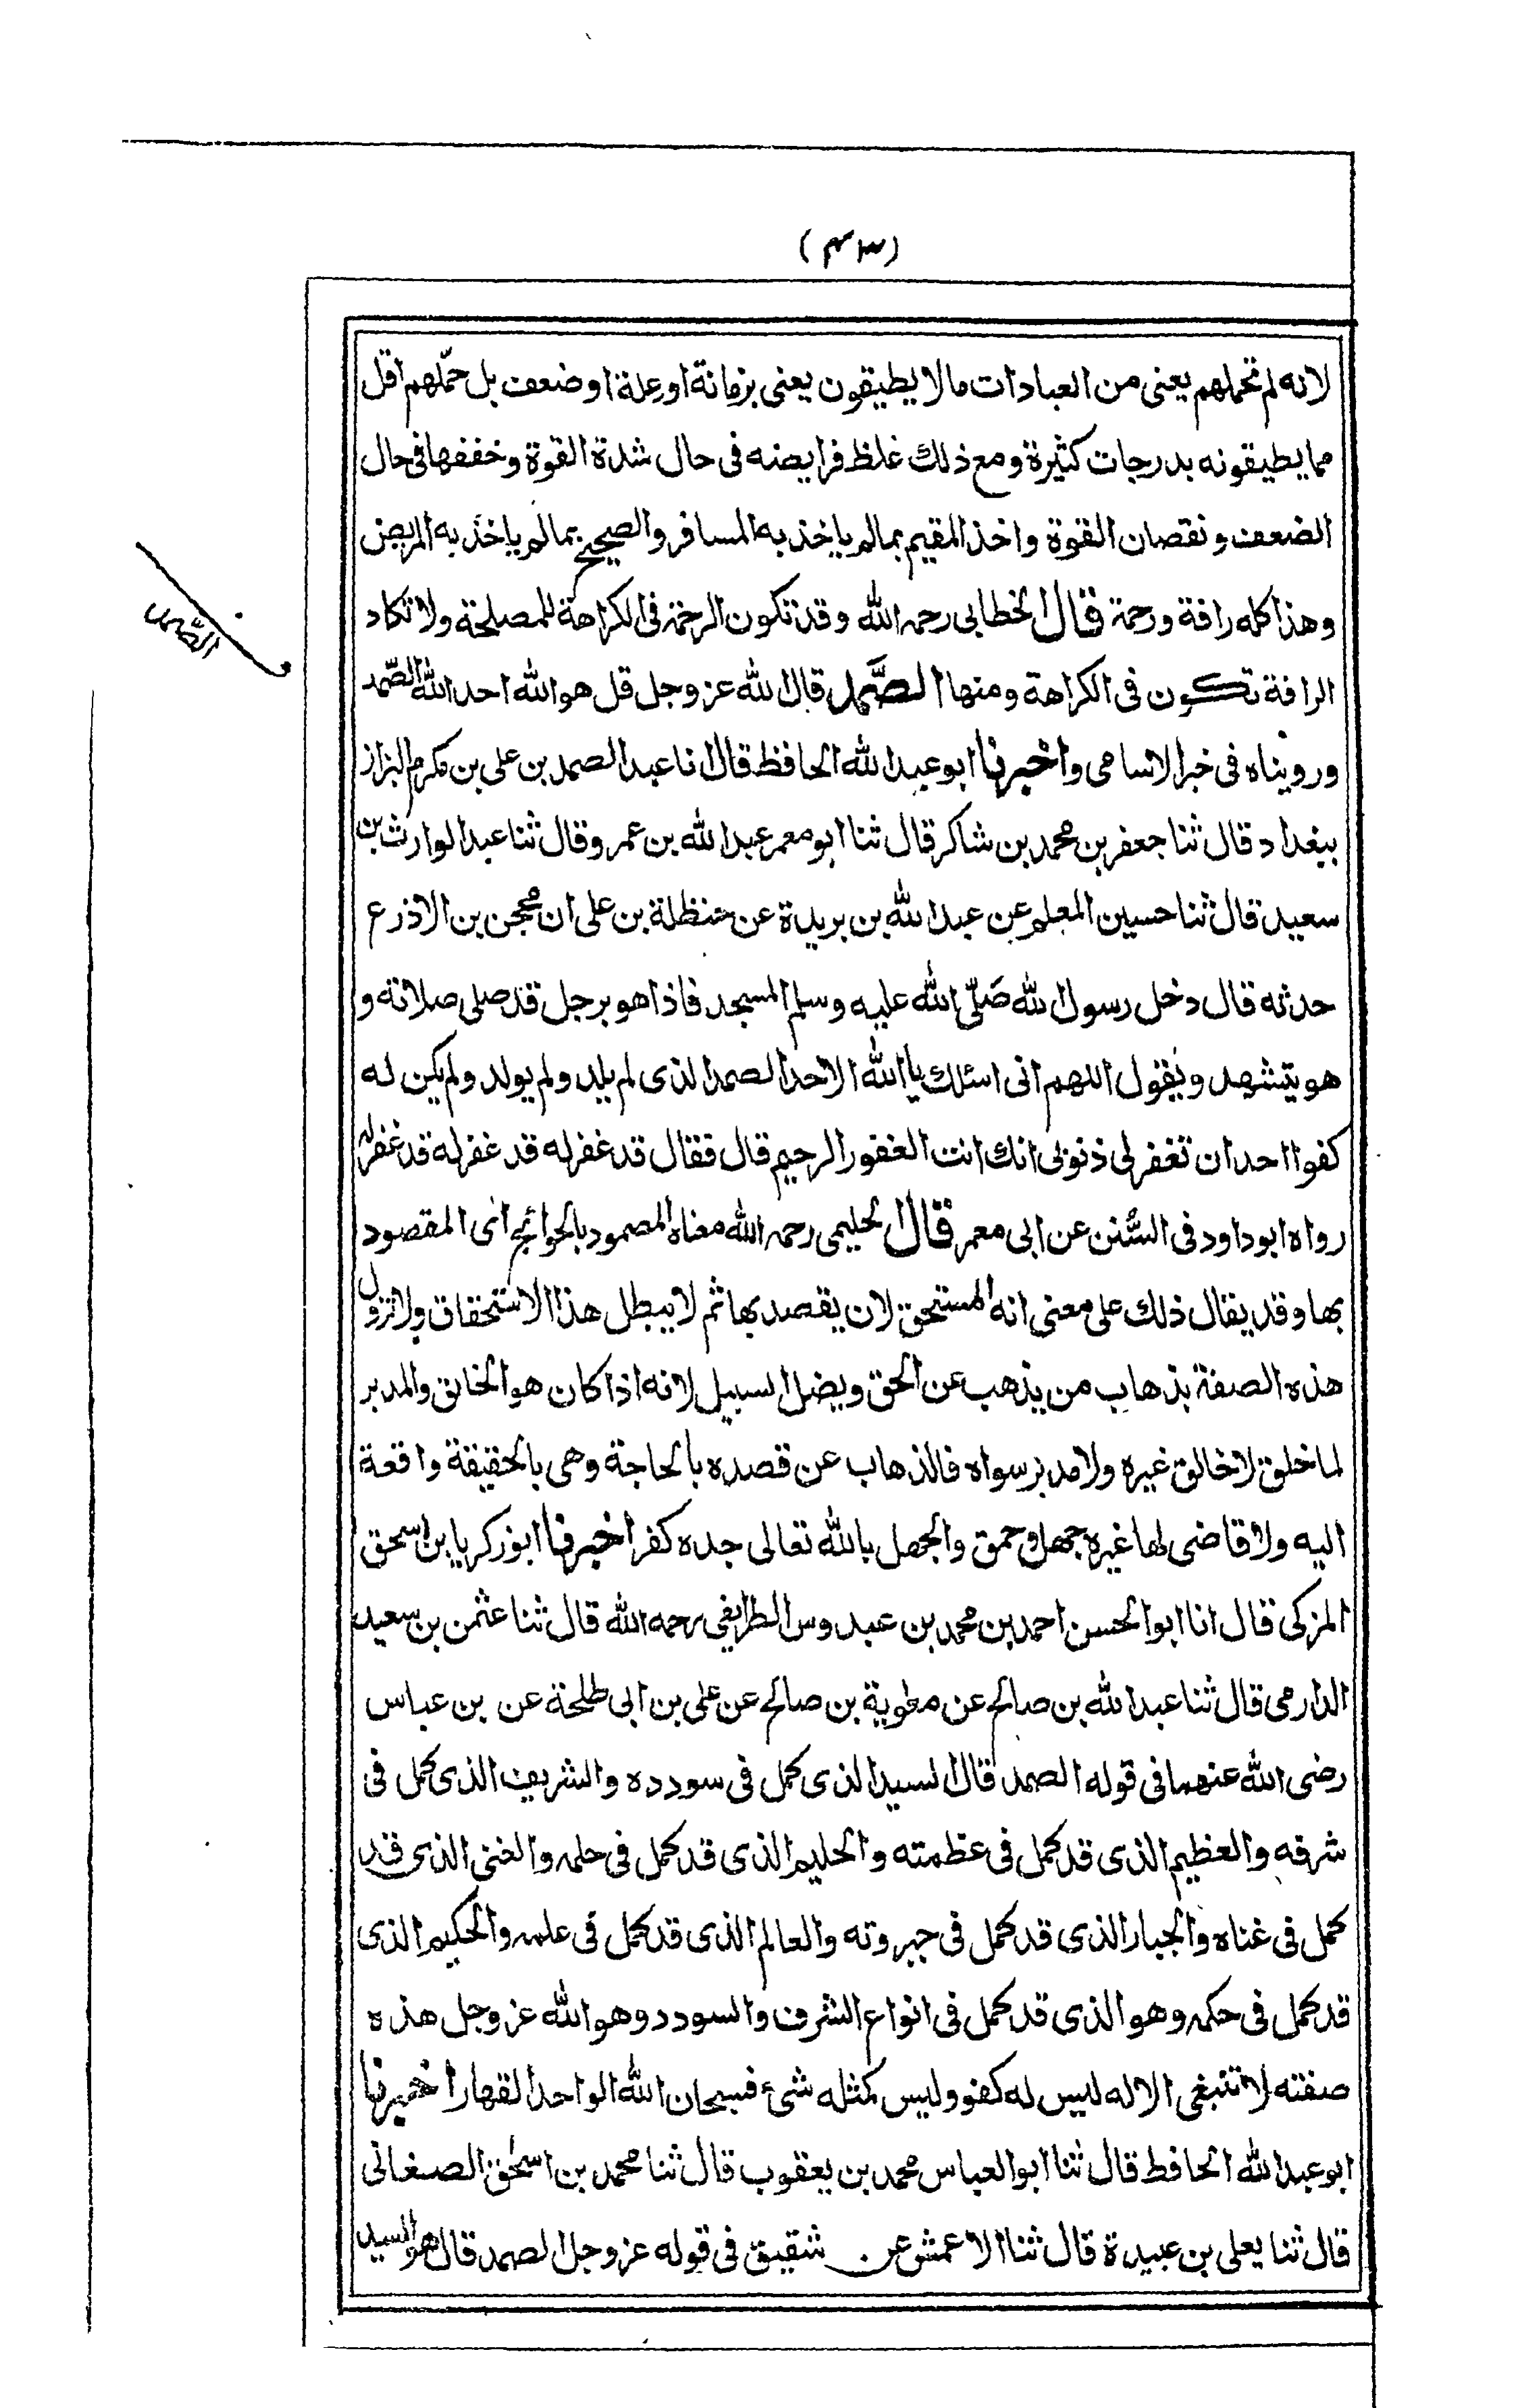 (٤٣)
لانه لم يحملهم يعنى من العبادات مالا يطيقون يعنى بزمانة او علة او ضعف بل حمّلهم اقل
مما يطيقونه بدرجات كثيرة ومع ذلك غلظ فرايضه فى حال شدة القوة وخففها فى حال
الضعف ونقصان القوة واخذ المقيم بمالم ياخذ به المسافر والصحيح بمالم ياخذ به المريض
وهذا كله رافة ورحمة قال الخطابى رحمه الله وقد تكون الرحمة فى الكراهة للمصلحة ولا تكاد
الرافة تكون فى الكراهة ومنها الصَّمد قال الله عز وجل قل هو الله احد الله الصّمد
الصّمد
ورويناه فى خبر الاسامى واخبرنا ابو عبد الله الحافظ قال انا عبد الصمد بن على بن مكرم البزاز
ببغداد قال ثنا جعفر بن محمد بن شاكر قال ثنا ابو معمر عبد الله بن عمرو قال ثنا عبد الوارث بن
سعيد قال ثنا حسين المعلم عن عبد الله بن بريدة عن حنظلة بن على ان محجن بن الاذرع
حدثه قال دخل رسول الله صَلّى الله عليه وسلم المسجد فاذا هو برجل قد صلى صلاته و
هو يتشهد ويقول اللهم انى اسئلك يا الله الاحد الصمد الذى لم يلد ولم يولد ولم يكن له
كفوا احد ان تغفر لى ذنوبى انك انت الغفور الرحيم قال فقال قد غفر له قد غفر له قد غفر له
رواه ابو داود فى السُّنن عن ابى معمر قال الحليمى رحمه الله معناه المصمود بالحوائج اى المقصود
بها وقد يقال ذلك على معنى انه المستحق لان يقصد بها ثم لا يبطل هذا الاستحقاق ولا تزول
هذه الصفة بذهاب من يذهب عن الحق ويضل السبيل لانه اذا كان هو الخالق والمدبر
لما خلق لا خالق غيره ولا مدبر سواه فالذهاب عن قصده بالحاجة وهى بالحقيقة واقعة
اليه ولا قاضى لها غيره جهل وحمق والجهل بالله تعالى جده كفر اخبرنا ابو زكريا بن اسحق
المزكى قال انا ابو الحسن احمد بن محمد بن عبدوس الطرايفى رحمه الله قال ثنا عثمن بن سعيد
الدارمى قال ثنا عبد الله بن صالح عن معوية بن صالح عن على بن ابى طلحة عن بن عباس
رضى الله عنهما فى قوله الصمد قال السيد الذى كمل فى سودده والشريف الذى كمل فى
شرفه والعظيم الذى قد كمل فى عظمته والحليم الذى قد كمل فى حلمه والغنى الذى قد
كمل فى غناه والجبار الذى قد كمل فى جبروته والعالم الذى قد كمل فى علمه والحكيم الذى
قد كمل فى حكمه وهو الذى قد كمل فى انواع الشرف والسودد وهو الله عز وجل هذه
صفته لا تنبغى الا له ليس له كفو وليس كمثله شئ فسبحان الله الواحد القهار اخبرنا
ابو عبد الله الحافظ قال ثنا ابو العباس محمد بن يعقوب قال ثنا محمد بن اسحق الصغانى
قال ثنا يعلى بن عبيدة قال ثنا الاعمش عن شقيق فى قوله عز وجل الصمد قال هو السيد